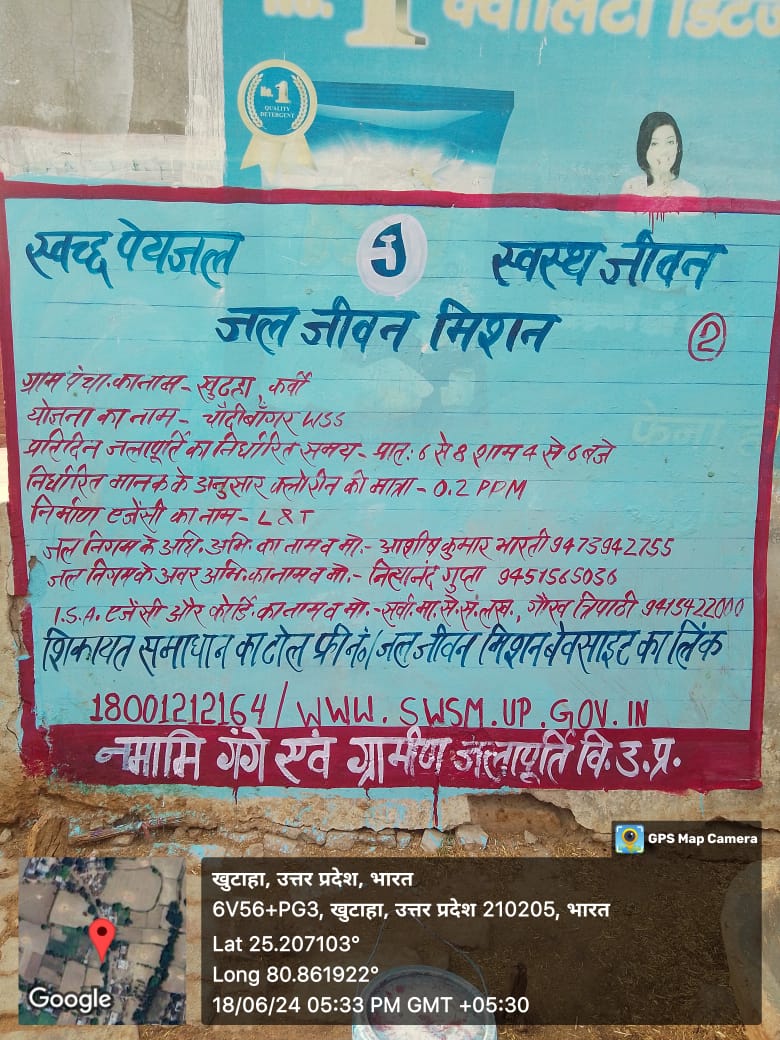 No. 1 क्वालिटी डिटर्जे
No. 1
QUALITY
DETERGENT
स्वच्छ पेयजल
स्वस्थ जीवन
जल जीवन मिशन
2
ग्राम पंचा. का नाम - खुटहा, कर्वी
योजना का नाम - चाँदीबाँगर WSS
प्रतिदिन जलापूर्ति का निर्धारित समय - प्रात: 6 से 8 शाम 4 से 6 बजे
निर्धारित मानक के अनुसार क्लोरीन की मात्रा - 0.2 PPM
निर्माण एजेंसी का नाम - L & T
फेना ह
जल निगम के अधि. अभि. का नाम व मो. - आशीष कुमार भारती 9473942755
जल निगम के अवर अभि. का नाम व मो. - नित्यानंद गुप्ता 9451565036
I.S.A. एजेंसी और कोर्डि. का नाम व मो. - सर्वा. मा. से. सं. लख., गौरव त्रिपाठी 9415422000
शिकायत समाधान का टोल फ्री नं./जल जीवन मिशन बेवसाइट का लिंक
18001212164 / WWW.SWSM.UP.GOV.IN
नमामि गंगे एवं ग्रामीण जलापूर्ति वि. उ. प्र.
GPS Map Camera
खुटाहा, उत्तर प्रदेश, भारत
6V56+PG3, खुटाहा, उत्तर प्रदेश 210205, भारत
Lat 25.207103°
Long 80.861922°
18/06/24 05:33 PM GMT +05:30
Google